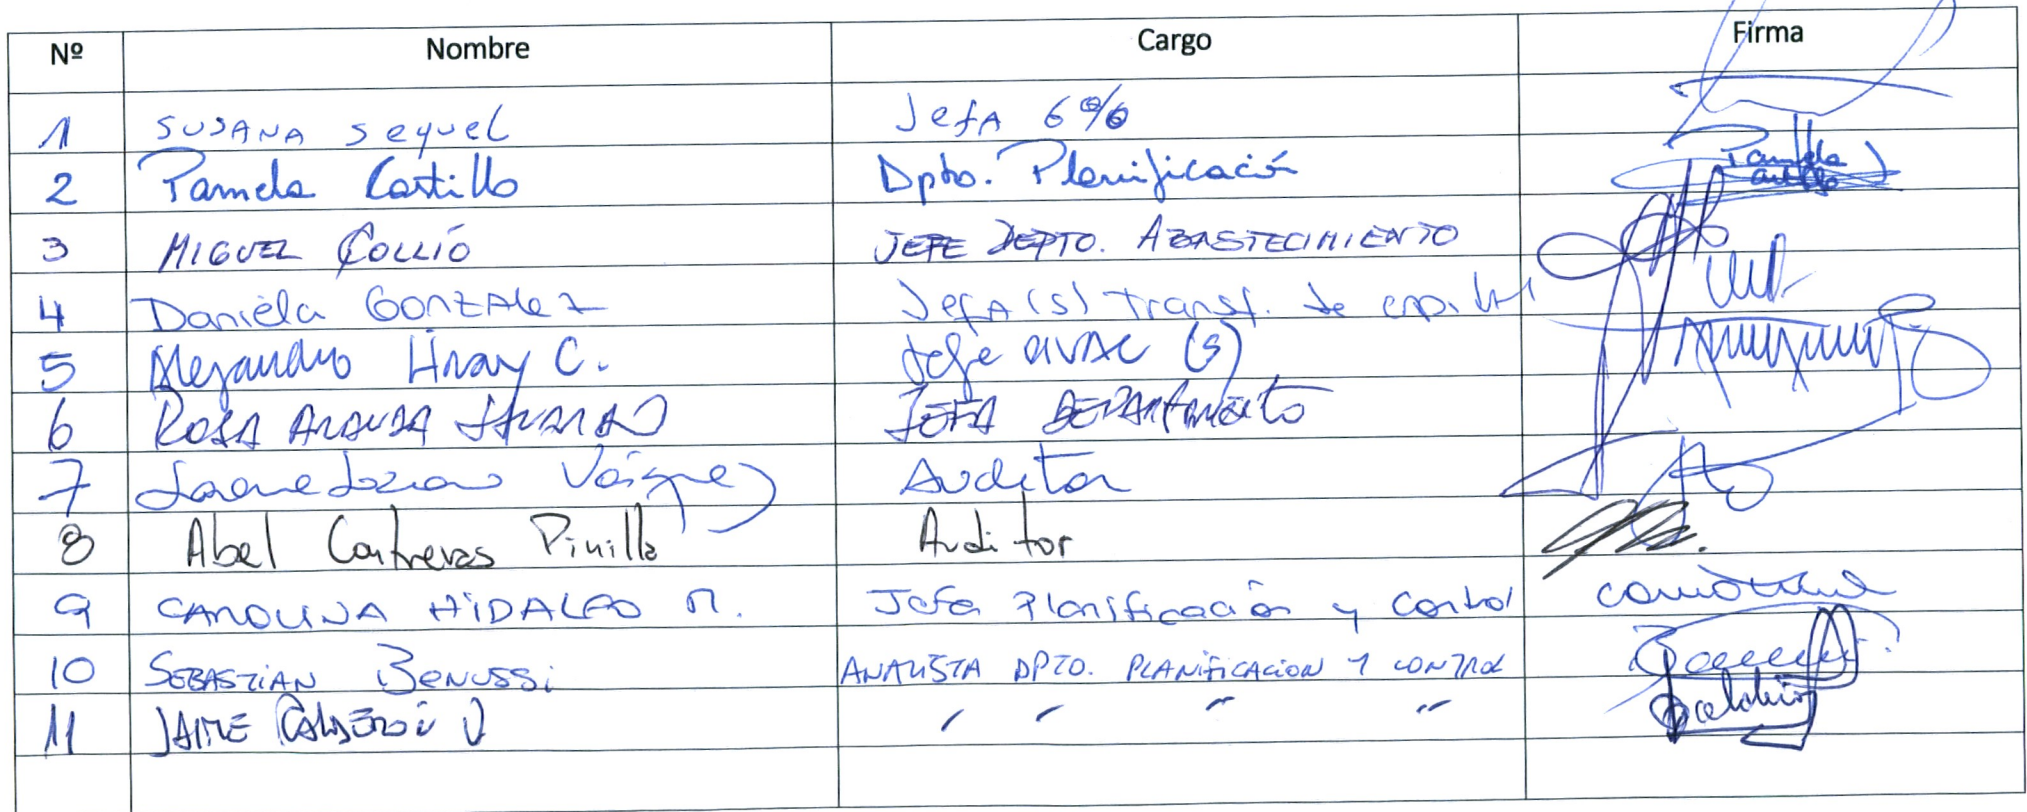 Nº Nombre Cargo Firma
1 SUSANA Seguel Jefa 6%
2 Pamela Castillo Dpto. Planificación Pamela Castillo
3 MIGUEL COLLÍO JEFE DEPTO. ABASTECIMIENTO
4 Daniela GONZALEZ Jefa (s) Transf. de capital
5 Alejandro C. Jefe (s)
6 ROSA ARANDA JEFA DEPARTAMENTO
7 Vásquez Auditor
8 Abel Contreras Pinilla Auditor
9 CAROLINA HIDALGO M. Jefa Planificación y Control
10 SEBASTIAN Benussi ANALISTA DPTO. PLANIFICACION Y CONTROL
11 JAIME CALDERÓN V " " " "